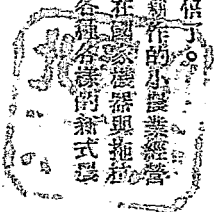 倍了。
動作的小農業經營
在國家機器與拖拉
各種各樣的新式農